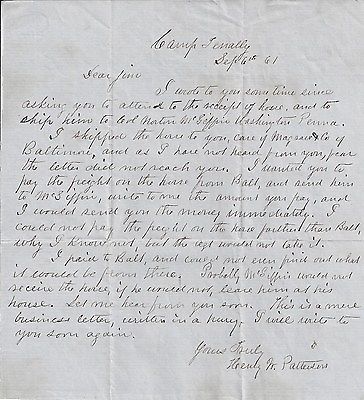 Camp Tenally
Sep 6th 61
Dear Jim
I wrote to you some time since
asking you to attend to the receipt of horse, and to
ship him to Col Norton McGiffin Washington Penna.
I shipped the horse to you, care of & Co of
Baltimore, and as I have not heard from you, fear
the letter did not reach you. I wanted you to
pay the freight on the horse from Balt, and send him
to McGiffin, write to me the amount you pay, and
I would send you the money immediately. I
could not pay the freight on the horse farther than Balt,
why I know not, but the agt would not take it.
I paid to Balt, and could not even find out what
it would be from there. Probally McGiffin would not
receive the horse, if he would not, leave him at his
house. Let me hear from you soon. This is a mere
business letter, written in a hurry. I will write to
you soon again.
Yours Truly
Henry W. Patterson